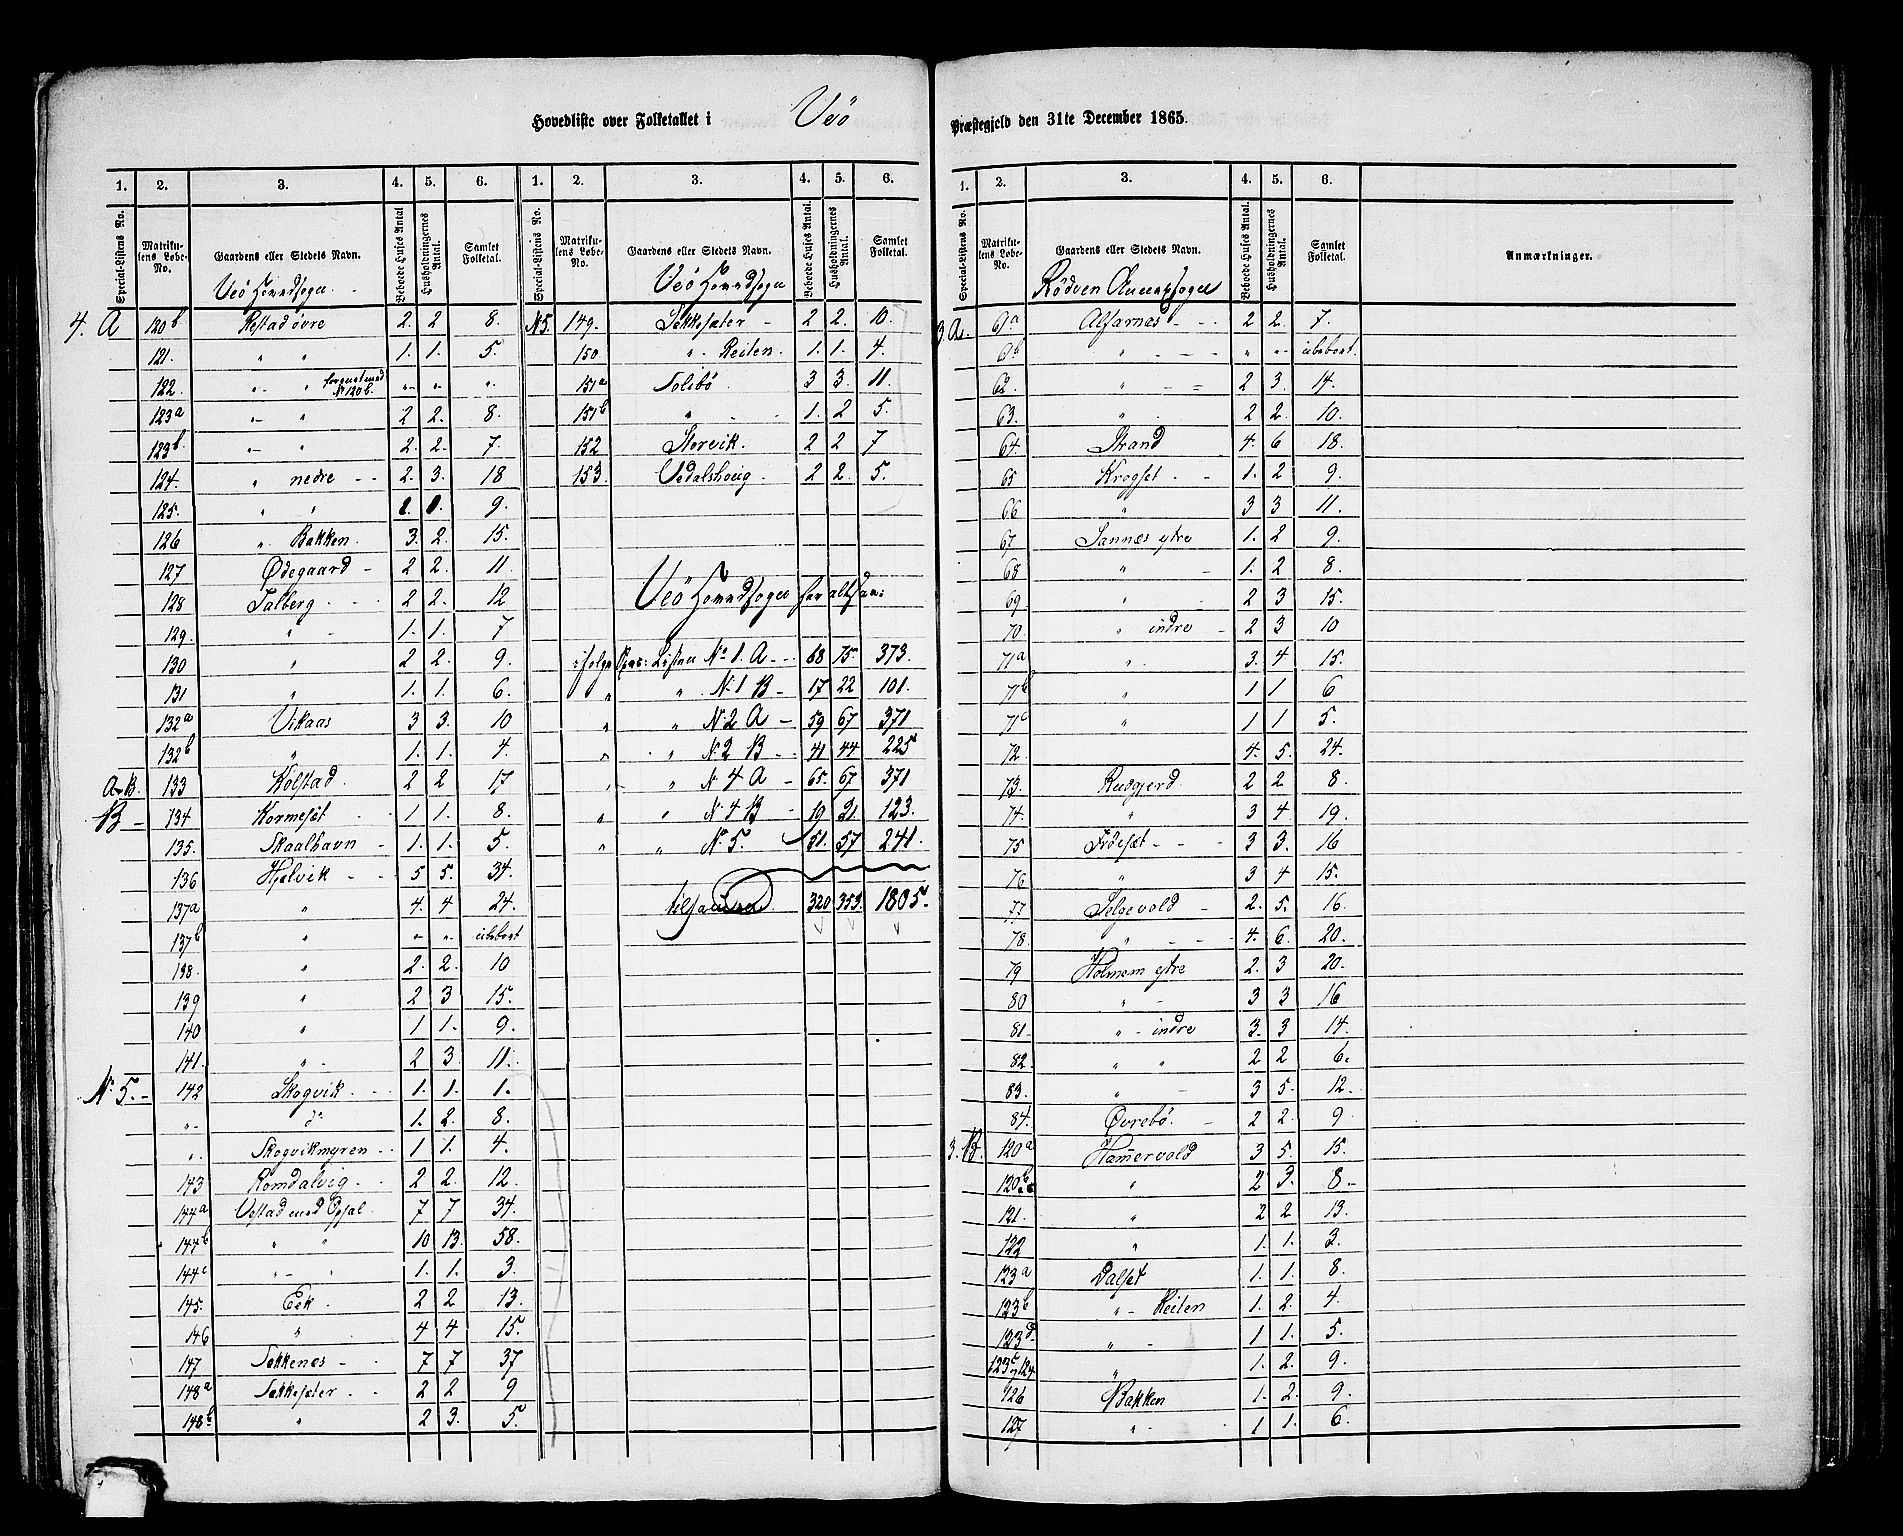 Hovedliste over Folketallet i Veö Præstegjeld den 31te December 1865.
1. 2. 3. 4. 5. 6. 1. 2. 3. 4. 5. 6.
Special-Listens No. Matrikulens Løbe-No. Gaardens eller Stedets Navn. Beboede Huses Antal Husholdningernes Antal. Samlet Folketal. Special-Listens No. Matrikulens Løbe-No. Gaardens eller Stedets Navn. Beboede Huses Antal. Husholdningernes Antal. Samlet Folketal.
Veö Hovedsogn Veö Hovedsogn
4. A 120b Restad øvre 2. 2 8.
121. " " 1. 1. 5.
122. " " forenet med No 120b. " " "
123a " " 2 2. 8.
123b " " 2. 2. 7.
124. " nedre 2. 3. 18
125. " " 1. 1. 9.
126 " Bakken 3. 2. 15.
127 Ødegaard 2 2. 11.
128 Talberg 2 2. 12
129. " 1. 1. 7
130 " 2 2. 9.
131 " 1. 1. 6.
132a Vikaas 3 3. 10
132b " 1. 1. 4.
A&B. 133 Kolstad 2 2 17
B 134 Kormesæt 1 1. 8.
135. Skaalhavn 1. 1. 5.
136 Hjelvik 5 5. 34.
137a " 4. 4 24.
137b " " " ubeboet
138. " 2. 2. 10
139 " 2 3 15.
140 " 1 1. 9.
141. " 2 3. 11.
N. 5. 142 Skogvik 1. 1. 1.
" do 1. 2. 8.
" Skogvikmyren 1 1. 4.
143 Romdalvig 2 2. 12.
144a Vestad med Opsal 7 7 34.
144b " " 10 13. 58.
144c " " 1. 1. 3.
145. Eik 2 2 13.
146 " 4 4 15.
147 Sekkenes 7 7 37
148a Sekkesæter 2 2 9
148b " 2 3. 5.
N5. 149. Sekkesæter 2 2. 10.
150 " Reiten 1. 1. 4.
151a Solsbö 3 3. 11.
151b " 1. 2 5.
152 Storvik 2 2 7
153 Vedalshoug 2 2. 5.
Veö Hovedsogn har altsaa:
ifølge Spec: Listen No 1. A 68 75 373.
" " N. 1 B 17 22 101.
" " N. 2 A 59 67 371
" " N. 2 B 41 44 225
" " N. 4 A 65. 67 371
" " N. 4 B 19 21. 123.
" " N. 5. 51. 57 241.
tilsammen 320 353. 1805.
1. 2. 3. 4. 5. 6.
Special-Listens No. Matrikulens Løbe-No. Gaardens eller Stedets Navn. Beboede Huses Antal. Husholdningernes Antal. Samlet Folketal. Anmærkninger.
Rödven Annexsogn
3 A. 61a Alfarnes 2 2. 7.
61b " " " ubeboet.
62. " 2 3. 14.
63. " 2 2. 10.
64. Strand 4. 6 18.
65 Krogset 1. 2 9.
66 " 3 3 11.
67 Sannes ytre 1. 2 9.
68 " 1. 2 8.
69 " 2 3 15.
70 " indre 2 3 10
71a " 3. 4 15.
71b " 1 1 6
71c " 1 1 5.
72. 4. 5. 24.
73. Rudgjerd 2 2 8.
74. " 3 4 19.
75 Fidesæt 3 3. 16
76 " 3 4 15.
77 Selgevold 2. 5. 16.
78 " 4. 6. 20.
79 Holmem ytre 2. 3 20.
80 " 3 3 16
81 " indre 3. 3 14.
82. " " 2 2 6.
83. " 3 5. 12.
84. Øvrebö 2 2. 9
3. B. 120a Hammervold 3 5. 15.
120b " 2 3. 8
121. " 2 2 13.
122 " 1. 1. 3.
123a Dalset 1. 1. 8.
123b " Reiten 1. 2. 4.
123d. " 1 1. 5.
123c og 124 " 1. 2. 9.
126 Bakken 1. 2. 9.
127 " 1 1. 6.